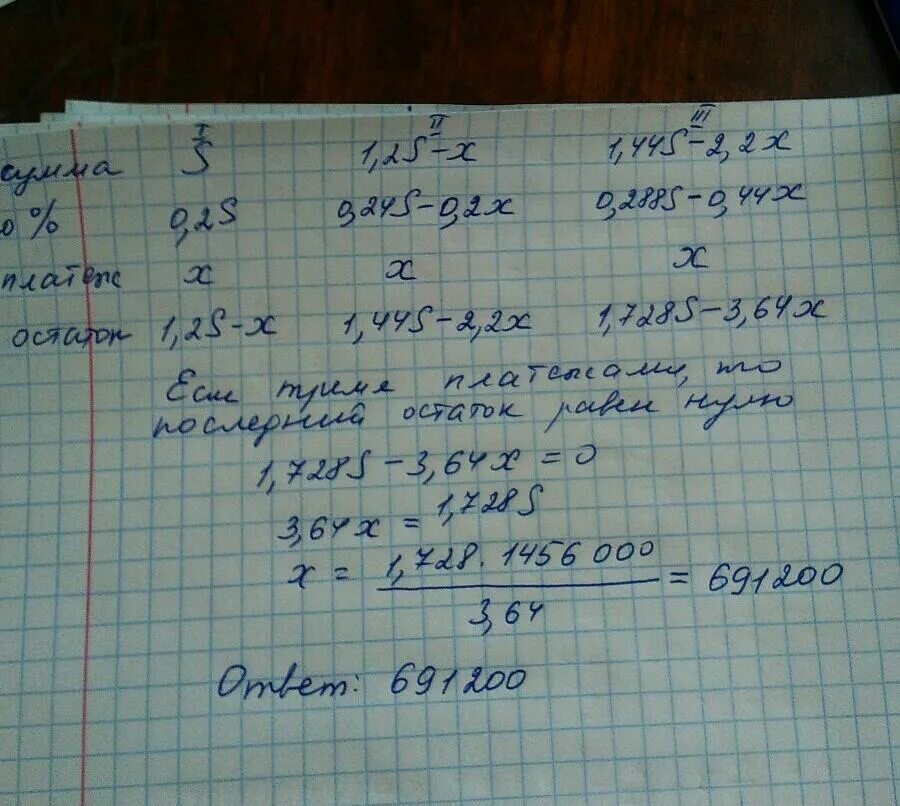 I II III
сумма S 1,2S-x 1,44S-2,2x
% 0,2S 0,24S-0,2x 0,288S-0,44x
платеж x x x
остаток 1,2S-x 1,44S-2,2x 1,728S-3,64x
Если тремя платежами, то
последний остаток равен нулю
1,728S-3,64x=0
3,64x=1,728S
x = 1,728·1456000 / 3,64 = 691200
Ответ: 691200